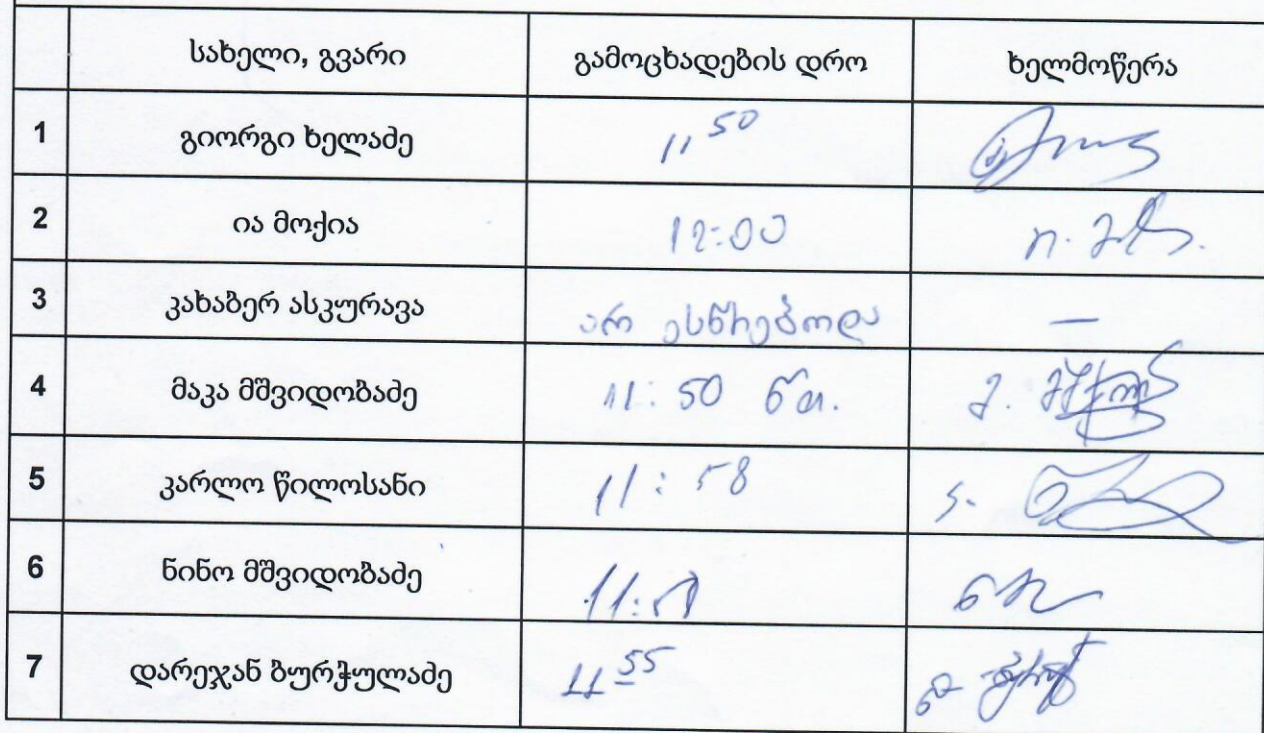 სახელი, გვარი გამოცხადების დრო ხელმოწერა
1 გიორგი ხელაძე 11 50
2 ია მოქია 12:00
3 კახაბერ ასკურავა არ ესწრებოდა —
4 მაკა მშვიდობაძე 11:50 წთ.
5 კარლო წილოსანი 11:58
6 ნინო მშვიდობაძე
7 დარეჯან ბურჭულაძე 11 55